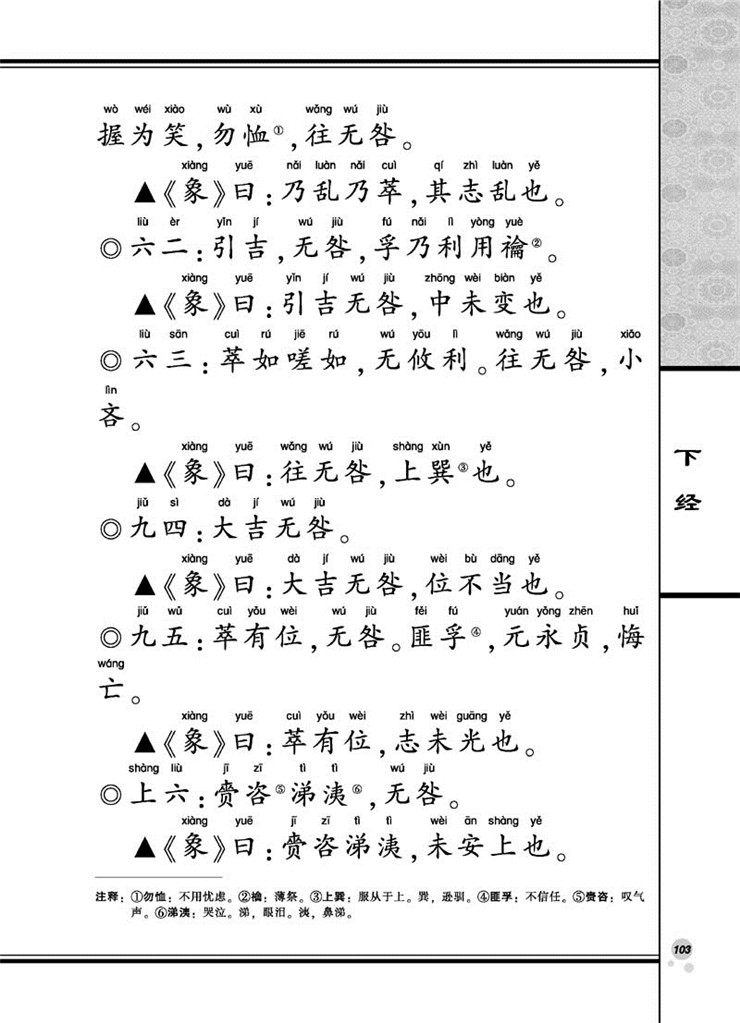 wò wéi xiào wù xù wǎng wú jiù
握为笑，勿恤①，往无咎。
xiàng yuē nǎi luàn nǎi cuì qí zhì luàn yě
▲《象》曰：乃乱乃萃，其志乱也。
liù èr yǐn jí wú jiù fú nǎi lì yòng yuè
◎六二：引吉，无咎，孚乃利用禴②。
xiàng yuē yǐn jí wú jiù zhōng wèi biàn yě
▲《象》曰：引吉无咎，中未变也。
liù sān cuì rú jiē rú wú yōu lì wǎng wú jiù xiǎo
◎六三：萃如嗟如，无攸利。往无咎，小
lìn
吝。
xiàng yuē wǎng wú jiù shàng xùn yě
▲《象》曰：往无咎，上巽③也。
jiǔ sì dà jí wú jiù
◎九四：大吉无咎。
xiàng yuē dà jí wú jiù wèi bù dāng yě
▲《象》曰：大吉无咎，位不当也。
jiǔ wǔ cuì yǒu wèi wú jiù fěi fú yuán yǒng zhēn huǐ
◎九五：萃有位，无咎。匪孚④，元永贞，悔
wáng
亡。
xiàng yuē cuì yǒu wèi zhì wèi guāng yě
▲《象》曰：萃有位，志未光也。
shàng liù jī zī tì tì wú jiù
◎上六：赍咨⑤涕洟⑥，无咎。
xiàng yuē jī zī tì tì wèi ān shàng yě
▲《象》曰：赍咨涕洟，未安上也。
注释：①勿恤：不用忧虑。②禴：薄祭。③上巽：服从于上。巽，逊驯。④匪孚：不信任。⑤赍咨：叹气
声。⑥涕洟：哭泣。涕，眼泪。洟，鼻涕。
下经
103